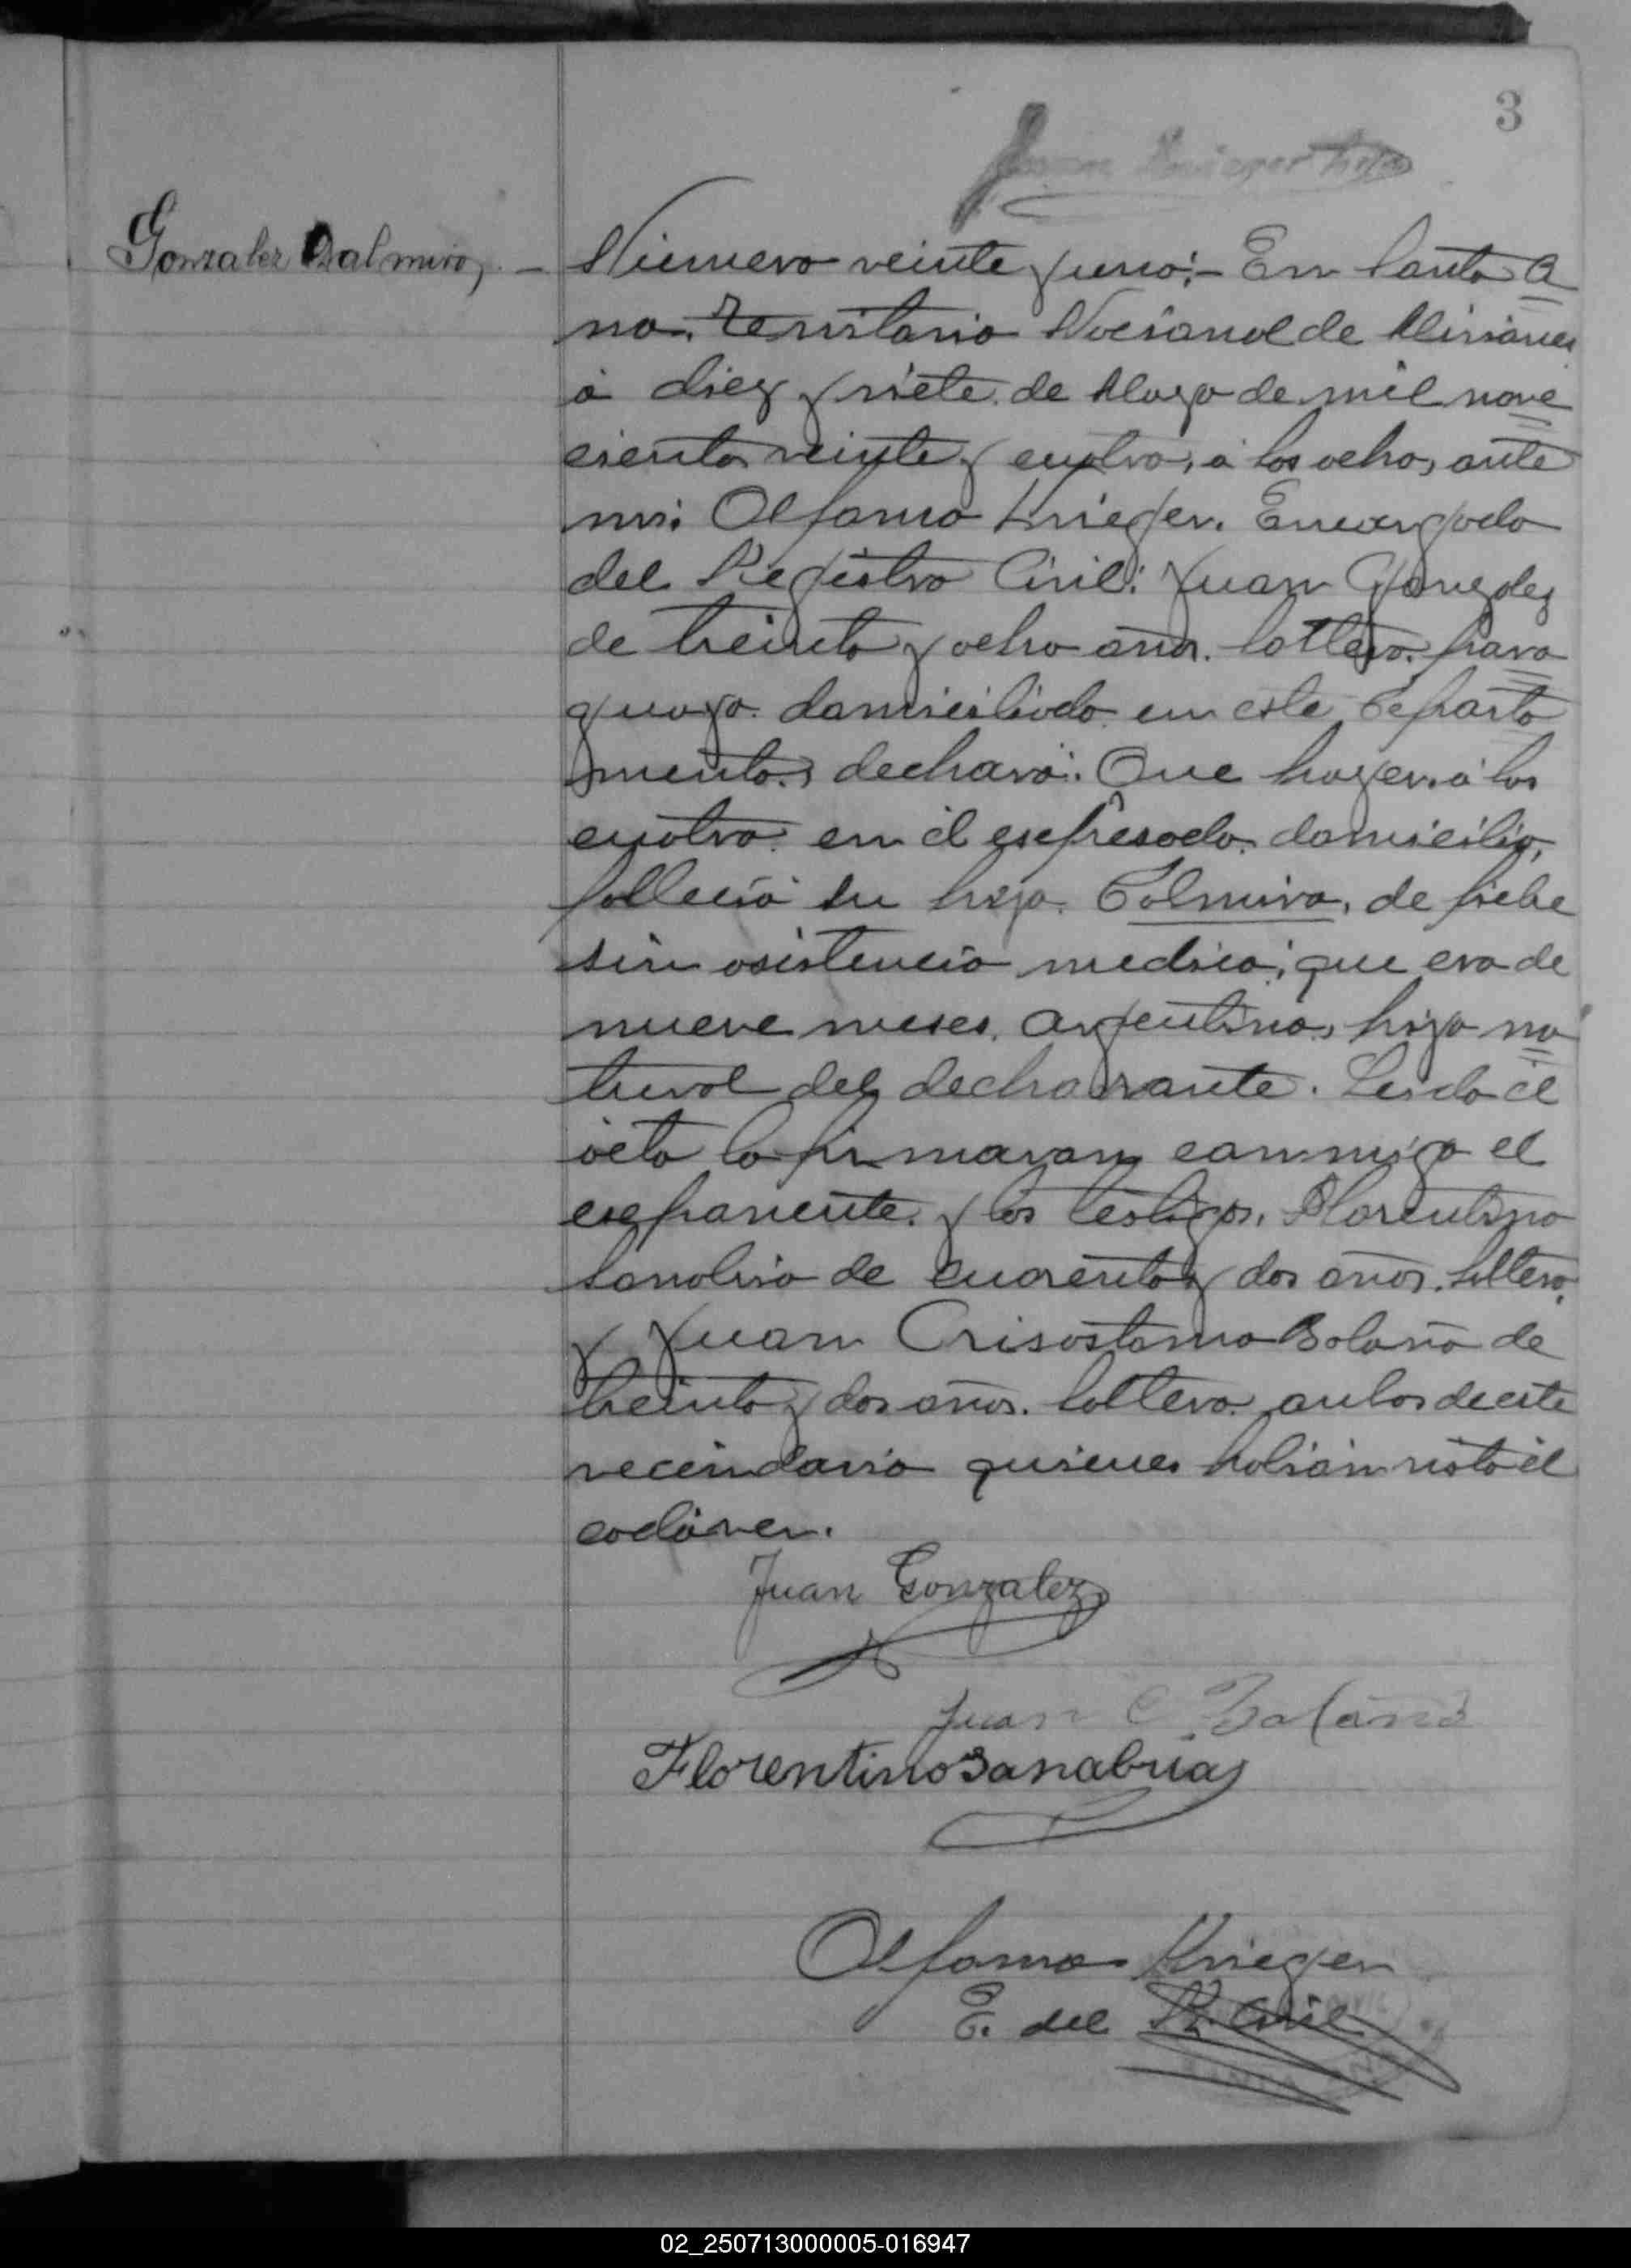 3
Gonzalez Dalmiro,. -
Número veinte y uno:- En Santa A
na. Territorio Nacional de Misiones
á diez y siete de Mayo de mil nove
cientos veinte y cuatro, á las ocho, ante
mi: Krieger. Encargado
del Registro Civil: Juan Gonzalez
de treinta y ocho años. soltero. para
guayo. domiciliado en este Departa
mento, declaró: Que hoy á las
cuatro en el espresado domicilio,
falleció su hijo. Dalmiro, de fiebre
sin asistencia medica; que era de
nueve meses. argentino, hijo na
tural del declarante. Leida el
acta la firmaron conmigo el
esponente. y los testigos. Florentino
Sanabria de cuarenta y dos años. soltero.
y Juan Crisostomo Bolaño de
treinta y dos años. soltero. anbos de este
vecindario quienes habian visto el
cadáver.
Juan Gonzalez
Juan C Bolaño
Florentino Sanabria
Krieger
E. del R. Civil
02_250713000005-016947